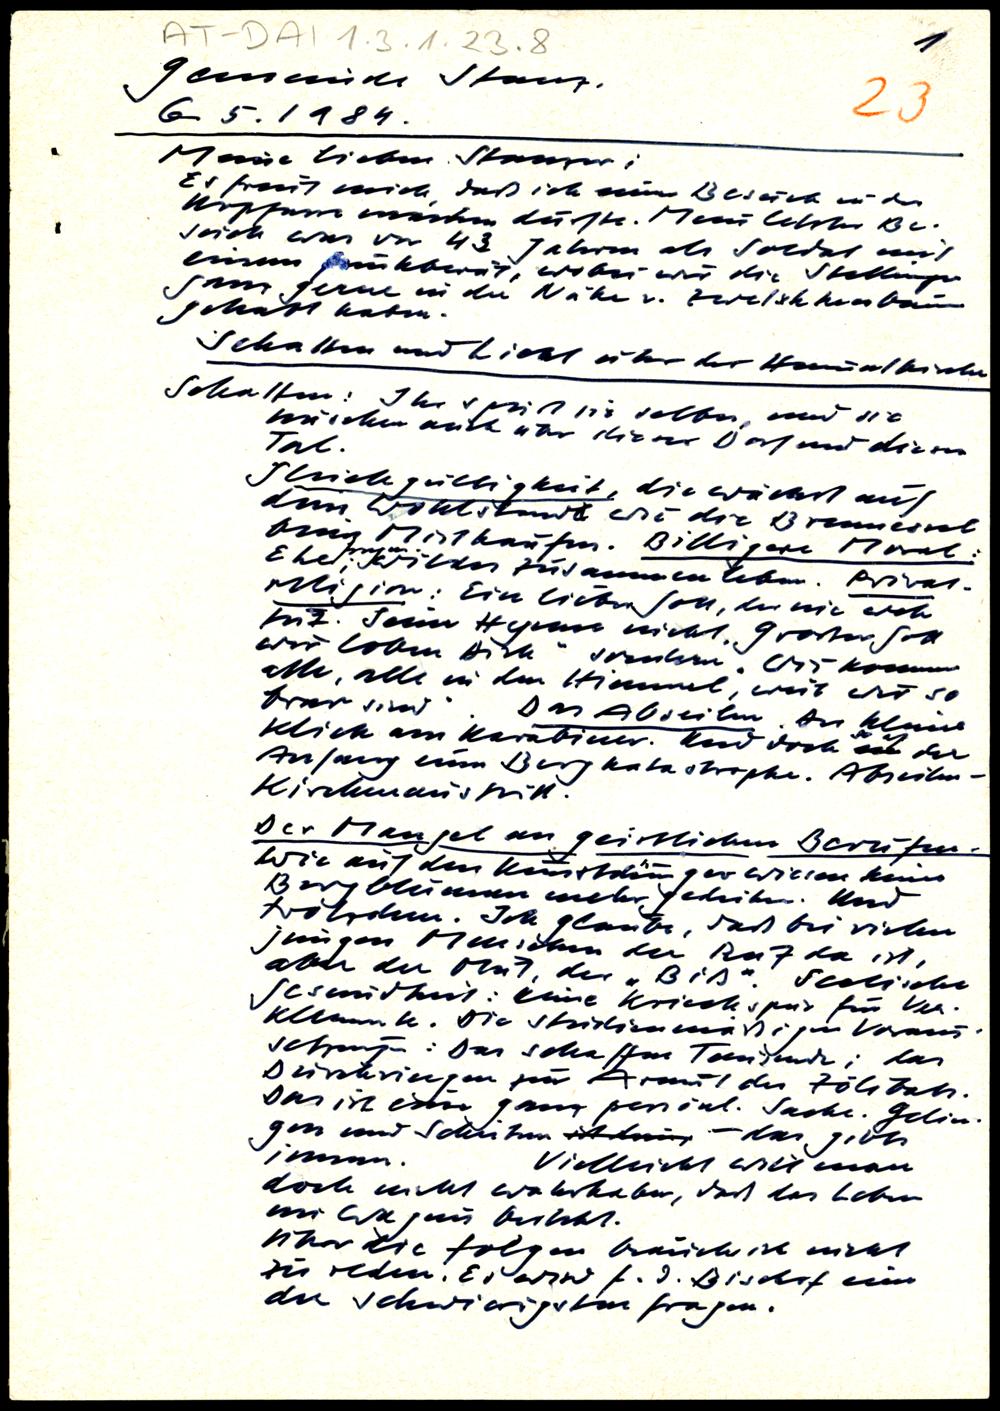 AT-DAI 1.3.1.23.8
1
Gemeinde Stanz.
23
6. 5. 1984.
Meine lieben Stanzer!
Es freut mich, daß ich einen Besuch in der
machen durfte. Mein letzter Be-
such war vor 43 Jahren als Soldat mit
einem wobei wir die Stellung
ganz gerne in der Nähe v. Zwetschkenbäumen
gehabt haben.
Schatten und Licht über der Heimatkirche
Schatten: Ihr spürt sie selber, und sie
auch über dieses Dorf und dieses
Tal.
Gleichgültigkeit, die wächst auf
dem Wohlstand wie die Brennessel
beim Misthaufen. Billigere Moral:
Ehefragen, wildes Zusammenleben. Privat-
religion: Ein lieber Gott, der nie weh
tut. Seine Hymne nicht „Großer Gott
wir loben Dich" sondern „Wir kommen
alle, alle in den Himmel, weil wir so
brav sind". Das Abseilen. Der kleine
Klick am Karabiner. Und doch ist der
Anfang einer Bergkatastrophe. Abseilen-
Kirchenaustritt.
Der Mangel an geistlichen Berufen.
Wie auf den Kunstdüngerwiesen keine
Bergblumen mehr gedeihen. Und
trotzdem. Ich glaube, daß bei vielen
jungen Menschen der Ruf da ist,
aber der Mut, der „Biß". Seelische
Gesundheit: keine Kriechspur für Ver-
klemmte. Die studienmäßigen Voraus-
setzungen: Das schaffen Tausende; das
Durchringen zur Armut des Zölibats.
Das ist eine ganz persönl. Sache. Gelin-
gen und Scheitern – das gibts
immer. Vielleicht will man
doch nicht wahrhaben, daß das Leben
im Wagnis besteht.
Über die Folgen brauche ich nicht
zu reden. Es wird f. d. Bischof eine
der schwierigsten Fragen.